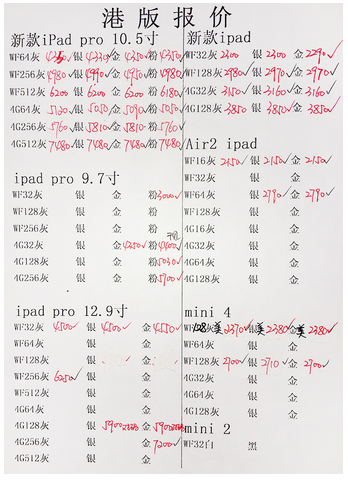 港版报价
新款iPad pro 10.5寸
WF64灰 银 4330 金 4350 粉 4350
WF256灰 4980 银 4990 金 4950 粉 4980
WF512灰 6200 银 6200 金 6200 粉 6180
4G64灰 5120 银 5050 金 5090 粉 5050
4G256灰 5760 银 5810 金 5810 粉 5760
4G512灰 7480 银 7480 金 7480 粉 7480
ipad pro 9.7寸
WF32灰 银 金 粉 3000
WF128灰 银 金 粉
WF256灰 银 金 粉
4G32灰 银 金 4250 粉 4200
4G128灰 银 金 粉 5030
4G256灰 银 金 粉 5700
ipad pro 12.9寸
WF32灰 4500 银 4500 金 4550
WF64灰 银 金
WF128灰 银 金
WF256灰 6250 银 金
WF512灰 银 金
4G64灰 银 金
4G128灰 银 5900 金 5900
4G256灰 银 金 7200
4G512灰 银 金
新款ipad
WF32灰 2300 银 2300 金 2290
WF128灰 2980 银 2970 金 2970
4G32灰 3150 银 3160 金 3160
4G128灰 3850 银 3850 金 3850
Air2 ipad
WF16灰 2150 银 2150 金 2150
WF32灰 银 金
WF64灰 银 2790 金 2790
WF128灰 银 金
4G16灰 银 金
4G32灰 银 金
4G64灰 银 金
4G128灰 银 金
mini 4
WF128灰 美 2370 银 美 2380 金 美 2380
WF64灰 银 金
WF128灰 2700 银 2710 金 2700
4G32灰 银 金
4G64灰 银 金
4G128灰 银 金
mini 2
WF32白 黑